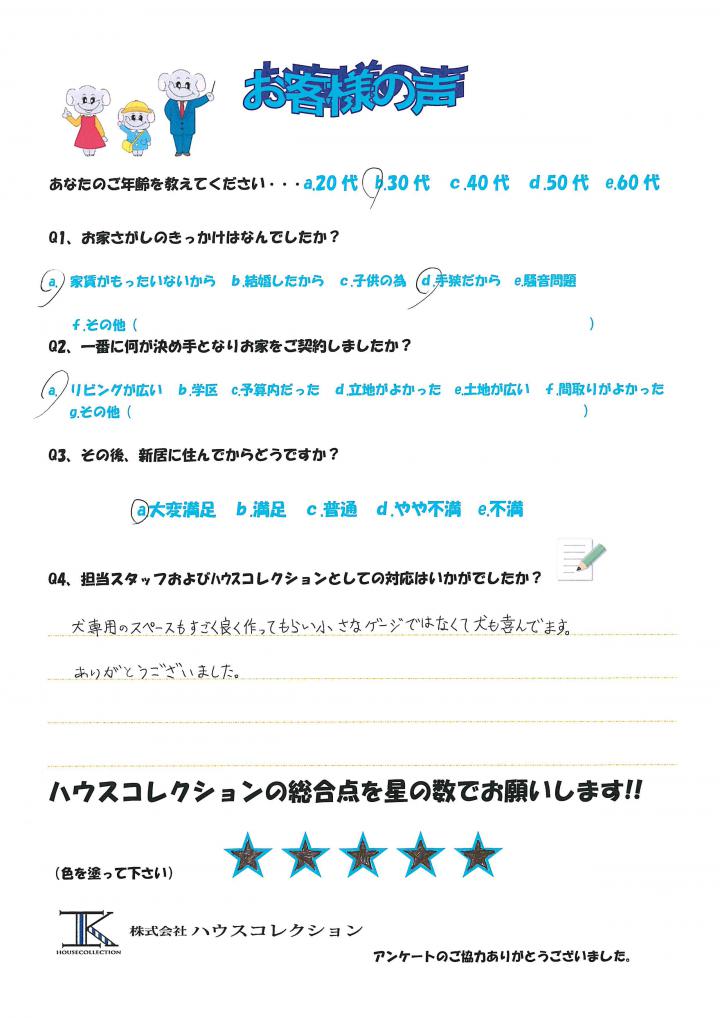 お客様の声
あなたのご年齢を教えてください・・・a.20代 b.30代 c.40代 d.50代 e.60代
Q1、お家さがしのきっかけはなんでしたか？
a. 家賃がもったいないから b.結婚したから c.子供の為 d.手狭だから e.騒音問題
f.その他（ ）
Q2、一番に何が決め手となりお家をご契約しましたか？
a. リビングが広い b.学区 c.予算内だった d.立地がよかった e.土地が広い f.間取りがよかった
g.その他（ ）
Q3、その後、新居に住んでからどうですか？
a大変満足 b.満足 c.普通 d.やや不満 e.不満
Q4、担当スタッフおよびﾊｳｽコレクションとしての対応はいかがでしたか？
犬専用のスペースもすごく良く作ってもらい小さなゲージではなくて犬も喜んでます。
ありがとうございました。
ハウスコレクションの総合点を星の数でお願いします!!
（色を塗って下さい）
HOUSECOLLECTION
株式会社 ハウスコレクション
アンケートのご協力ありがとうございました。